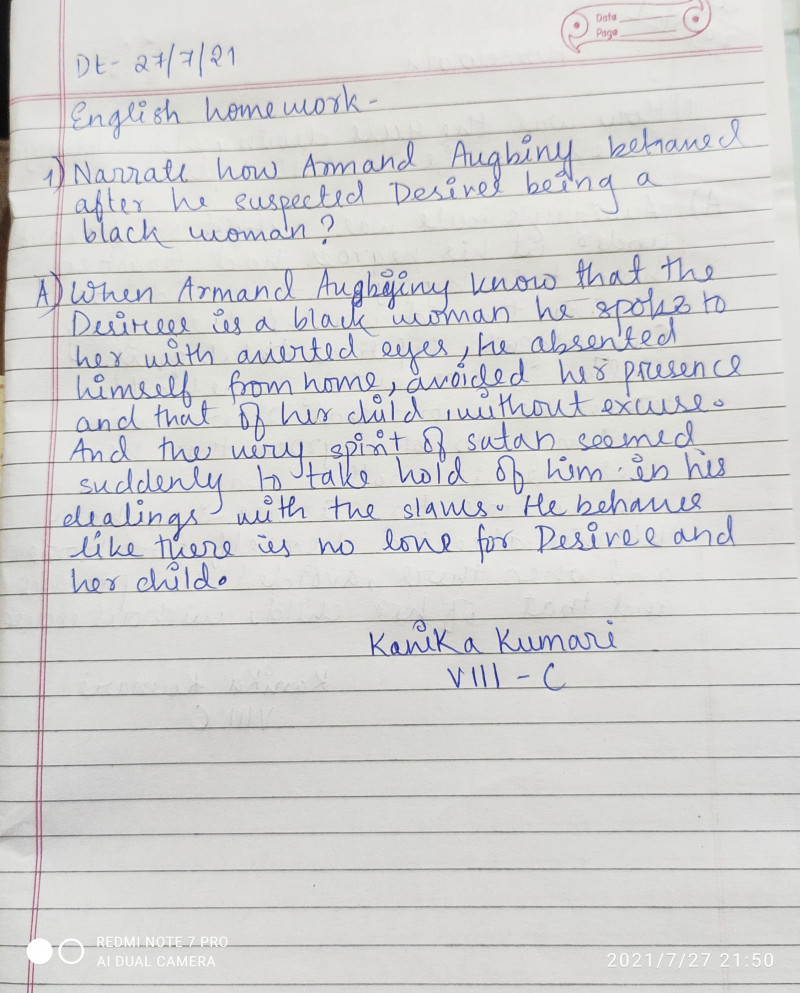 Data
Page
Dt- 27/7/21
English homework-
1) Narrate how Armand Augbiny behaved
after he suspected Desiree being a
black woman?
A) When Armand Augbiny know that the
Desiree is a black woman he spoke to
her with averted eyes, he absented
himself from home, avoided her presence
and that of her child, without excuse.
And the very spirit of satan seemed
suddenly to take hold of him in his
dealings with the slaves. He behaves
like there is no love for Desiree and
her child.
Kanika Kumari
VIII - C
REDMI NOTE 7 PRO
AI DUAL CAMERA
2021/7/27 21:50